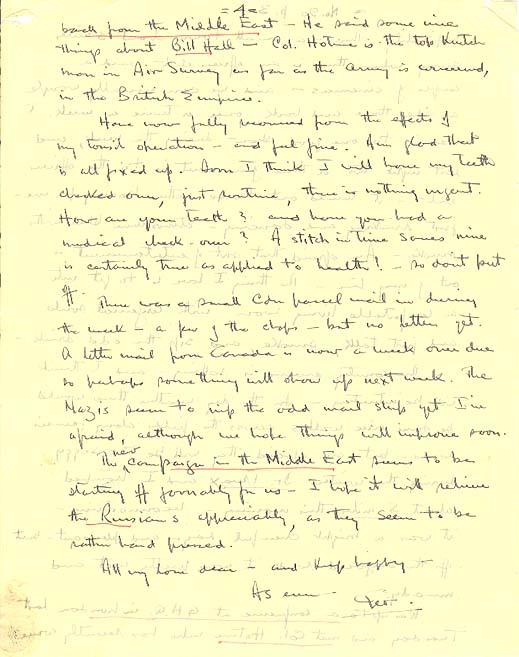 - 4 -
back from the Middle East – He said some nice
things about Bill Hall – Col. Hotine is the top hutch
man in Air Survey as far as the Army is concerned,
in the British Empire.
Have now fully recovered from the effects of
my tonsil operation – and feel fine. Am glad that
is all fixed up. Soon I think I will have my teeth
checked over, just routine, there is nothing urgent.
How are your teeth? and have you had a
medical check-over? A stitch in time saves nine
is certainly true as applied to health! – so don't put
off.
There was a small Cdn parcel mail in during
the week – a few of the chaps – but no letters yet.
A letter mail from Canada is now a week over due
so perhaps something will show up next week. The
Nazis seem to nip the odd mail ship yet I'm
afraid, although we hope things will improve soon.
The new campaign in the Middle East seems to be
starting off favorably for us – I hope it will relieve
the Russians appreciably, as they seem to be
rather hard pressed.
All my love dear – and keep happy
As ever